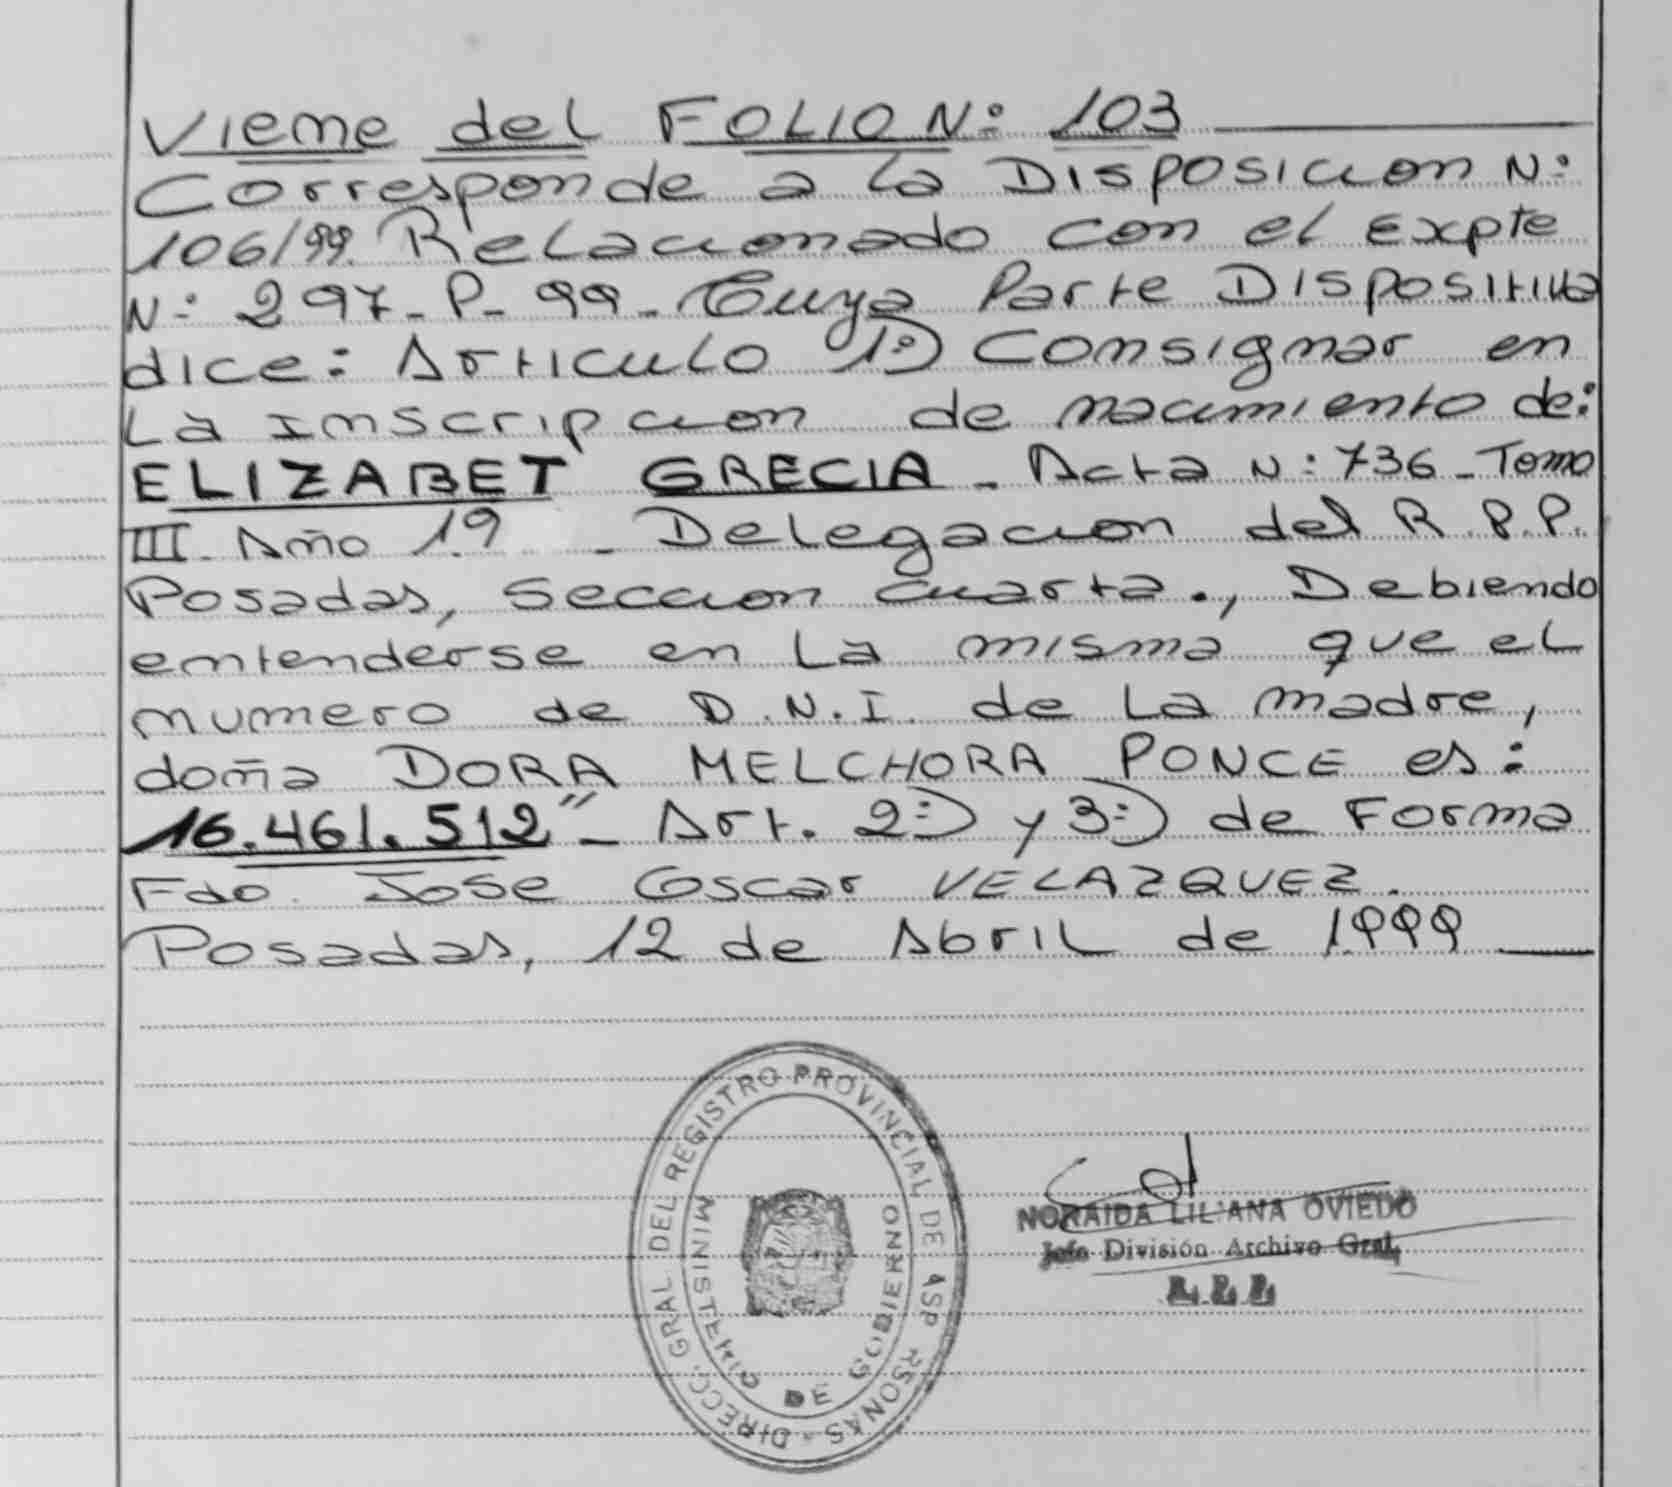 Viene del FOLIO N: 103
Corresponde a la Disposicion N:
106/99. Relacionado con el Expte
N: 297-P-99- Cuya Parte Dispositiva
dice: Articulo 1:) Consignar en
La inscripcion de nacimiento de:
ELIZABET GRECIA - Acta N: 736 - Tomo
III. Año 19 - Delegacion del R.P.P.
Posadas, Seccion Cuarta., Debiendo
entenderse en La misma que el
numero de D.N.I. de La madre,
doña DORA MELCHORA PONCE es:
16.461.512"- Art. 2:) y 3:) de Forma
Fdo. Jose Oscar VELAZQUEZ.
Posadas, 12 de Abril de 1999
DIRECC. GRAL DEL REGISTRO PROVINCIAL DE
MINISTERIO DE GOBIERNO
NORAIDA LILIANA OVIEDO
Jefe División Archivo Gral.